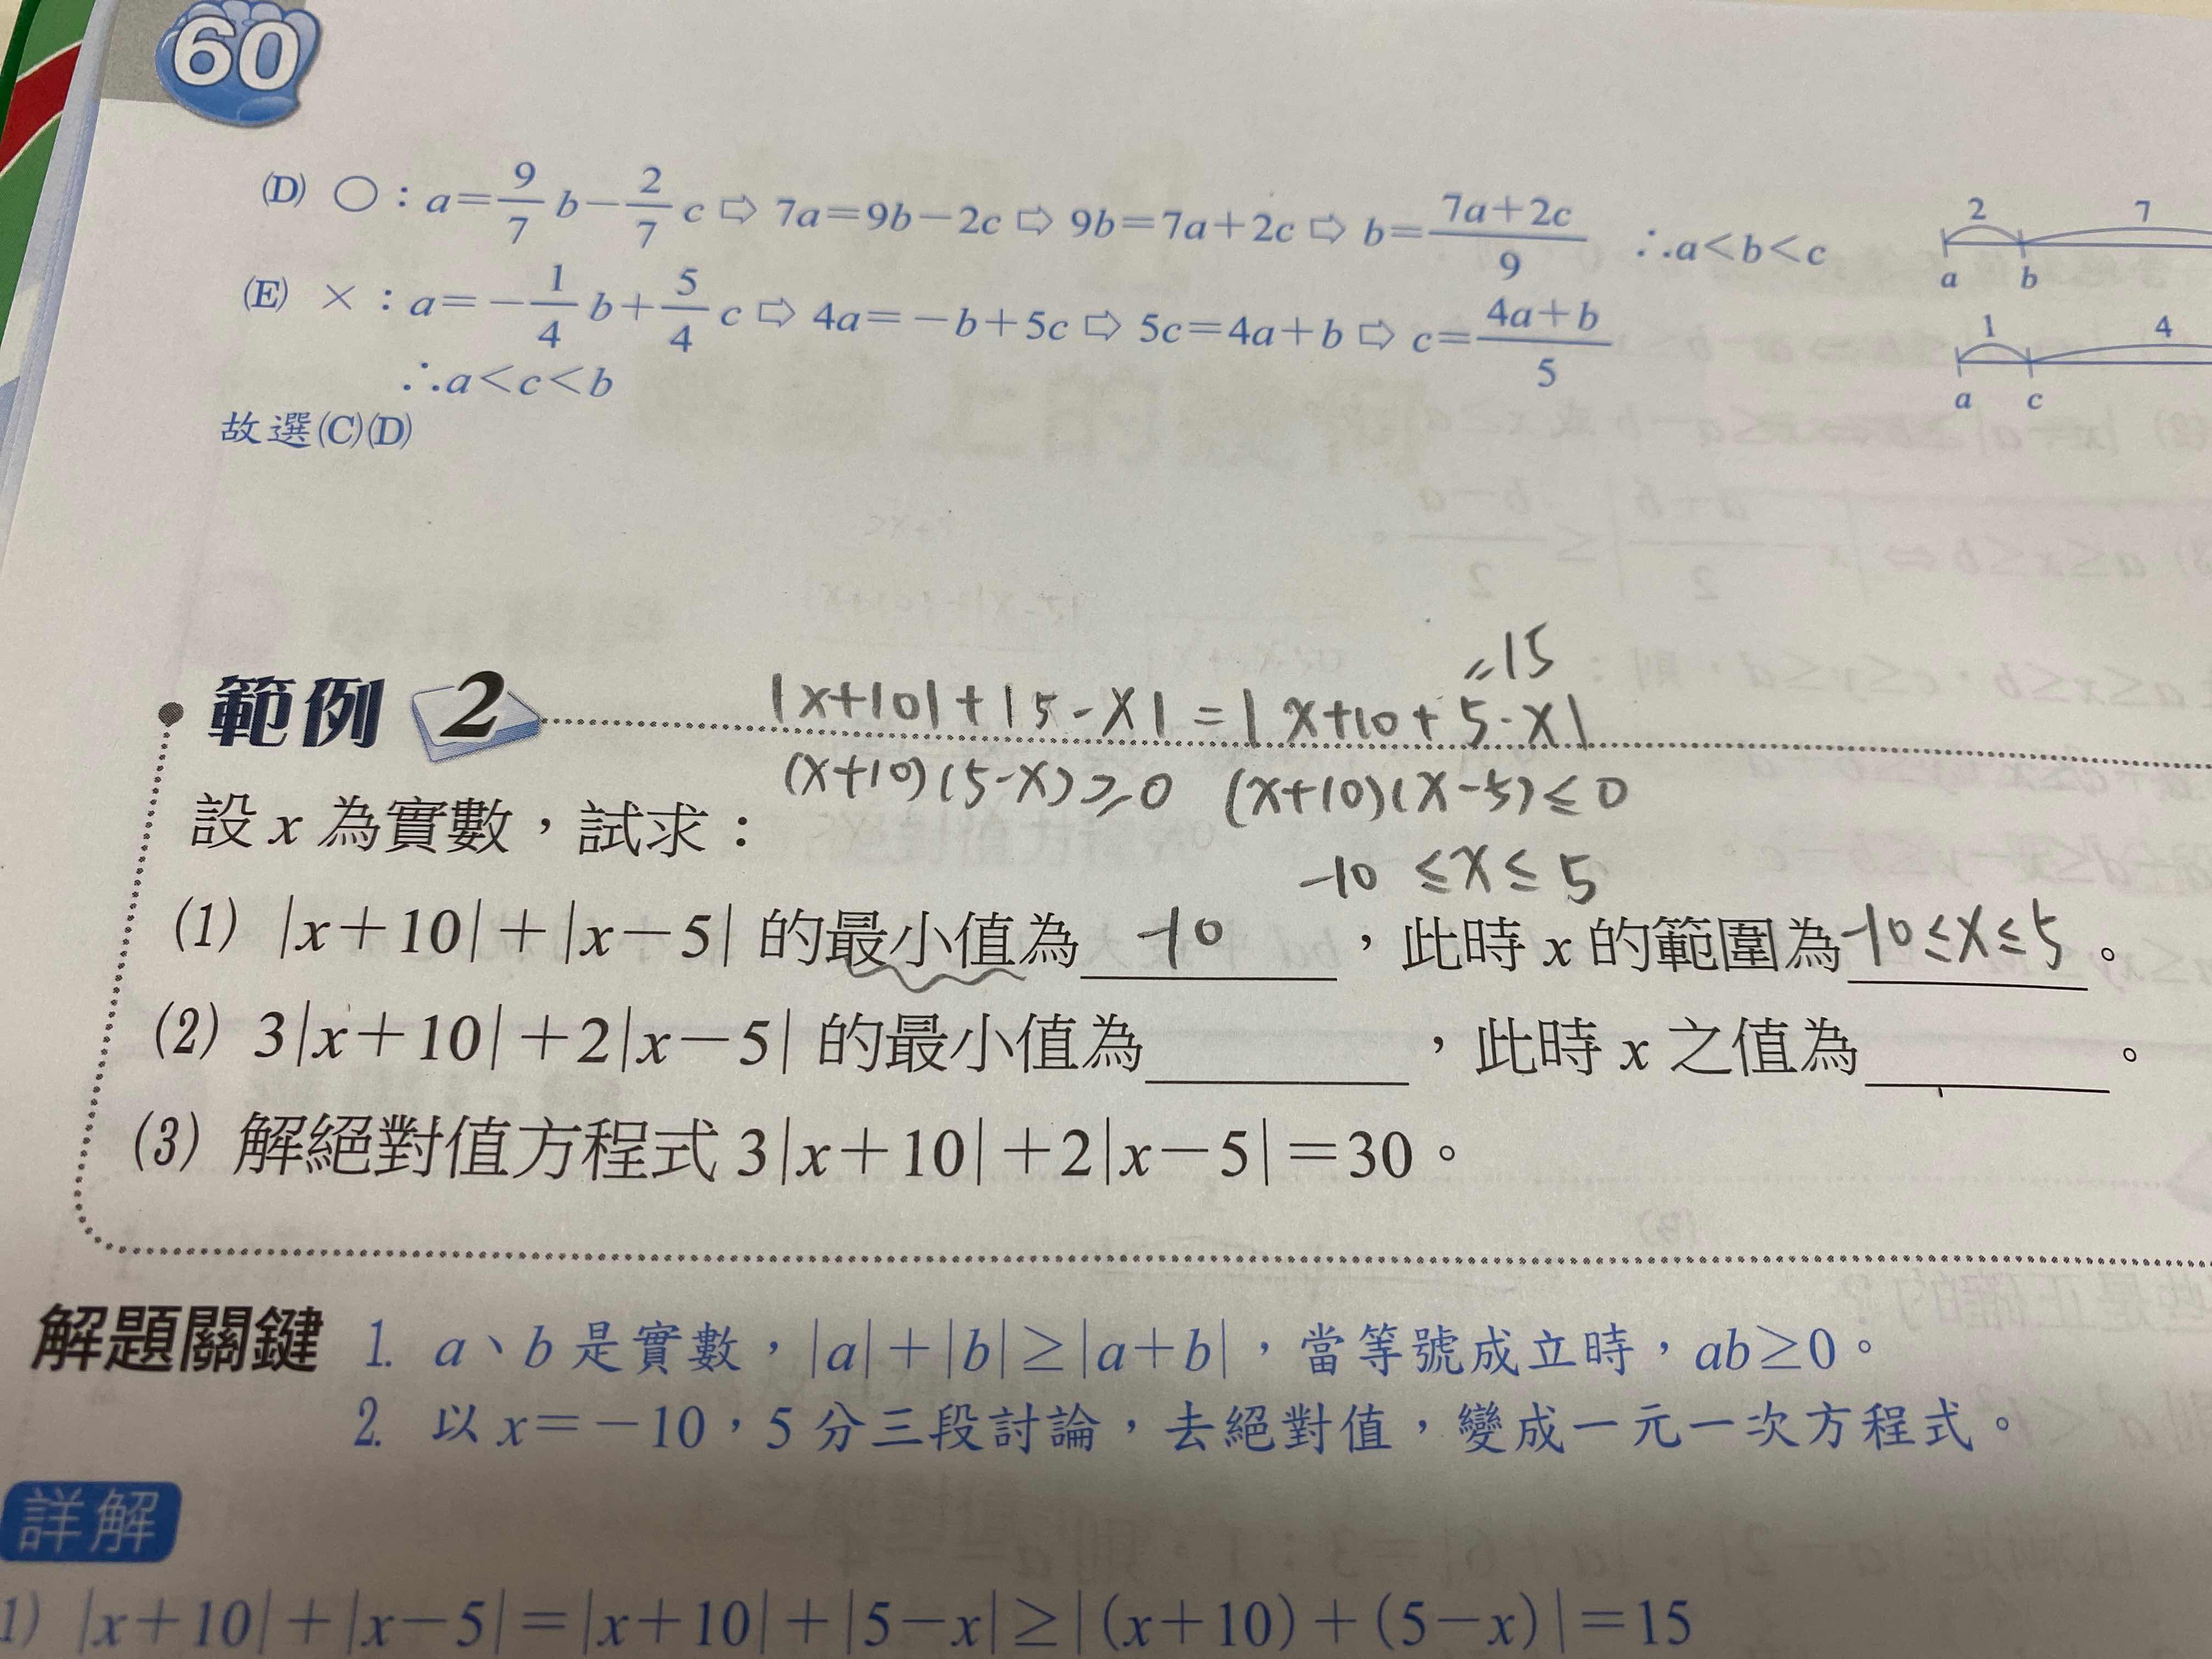 60
(D) ○：a=9/7 b-2/7 c ⇨ 7a=9b-2c ⇨ 9b=7a+2c ⇨ b=(7a+2c)/9 ∴a<b<c
2 7
a b
(E) ×：a=-1/4 b+5/4 c ⇨ 4a=-b+5c ⇨ 5c=4a+b ⇨ c=(4a+b)/5
1 4
a c
∴a<c<b
故選(C)(D)
=15
|x+10|+|5-x|=|x+10+5-x|
範例 2
(x+10)(5-x)≥0 (x+10)(x-5)≤0
設 x 為實數，試求：
-10≤x≤5
(1) |x+10|+|x-5| 的最小值為 -10 ，此時 x 的範圍為 -10≤x≤5 。
(2) 3|x+10|+2|x-5| 的最小值為 ，此時 x 之值為 。
(3) 解絕對值方程式 3|x+10|+2|x-5|=30。
解題關鍵 1. a、b 是實數，|a|+|b|≥|a+b|，當等號成立時，ab≥0。
2. 以 x=-10，5 分三段討論，去絕對值，變成一元一次方程式。
詳解
1) |x+10|+|x-5|=|x+10|+|5-x|≥|(x+10)+(5-x)|=15